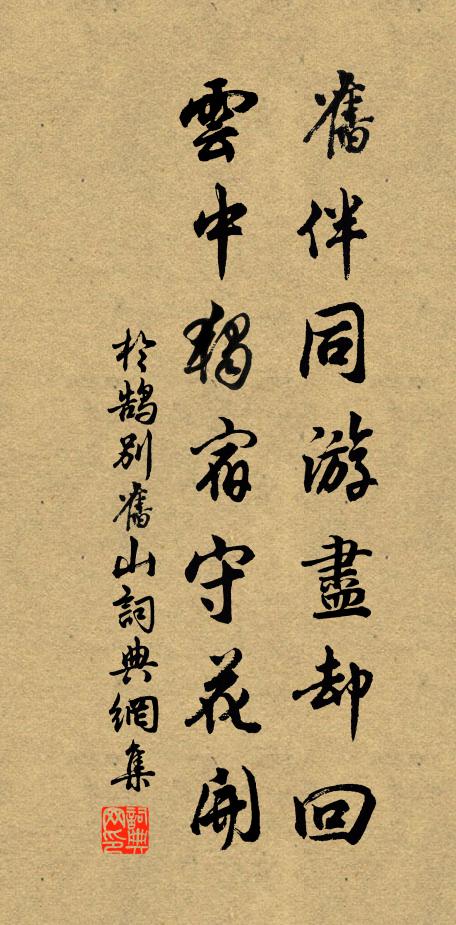 舊伴同游盡却回
雲中獨宿守花開
於鵠別舊山詞典網集
詞典網印